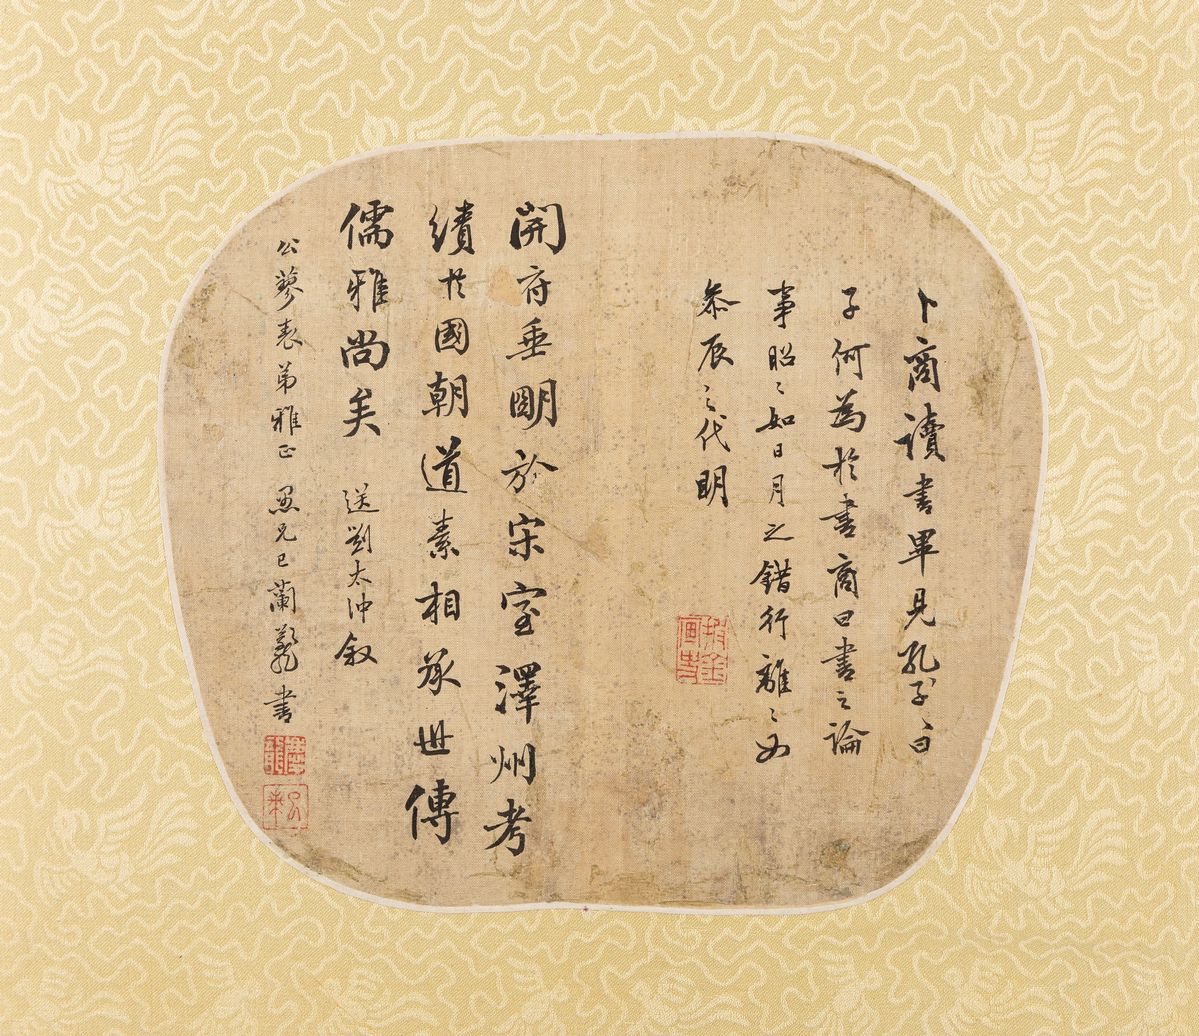 卜商讀書畢見孔子孔子曰
子何為於書商曰書之論
事昭昭如日月之錯行離離如
參辰之代明
開府垂明於宋室澤州考
績於國朝道素相承世傳
儒雅尚矣 送劉太沖叙
公蓼表弟雅正 愚兄巳蘭龔書